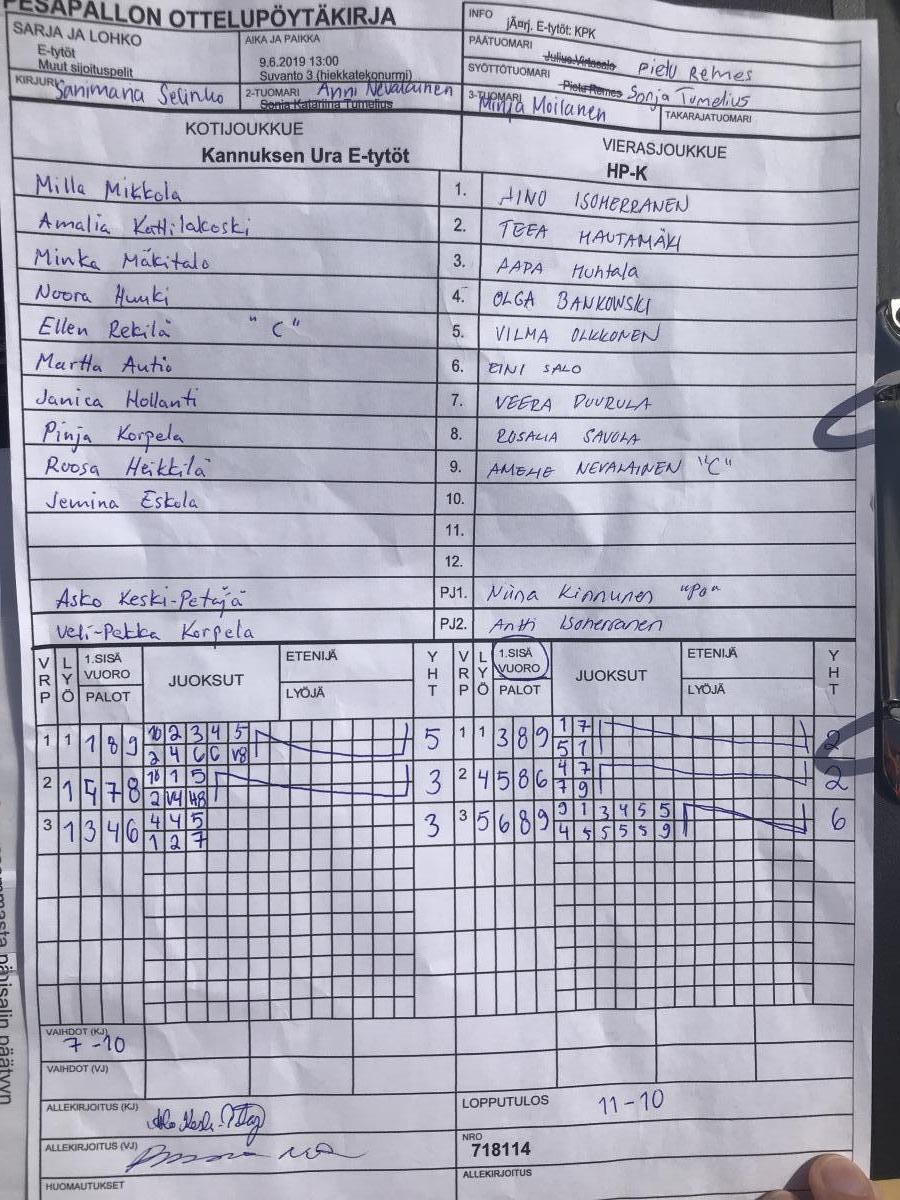 PESÄPALLON OTTELUPÖYTÄKIRJA
SARJA JA LOHKO
E-tytöt
Muut sijoituspelit
AIKA JA PAIKKA
9.6.2019 13:00
Suvanto 3 (hiekkatekonurmi)
INFO
jÃ¤rj. E-tytöt: KPK
PÄÄTUOMARI Julius Virtasalo Pietu Remes
SYÖTTÖTUOMARI Pietu Remes Sonja Tumelius
KIRJURI Sanimana Selinko
2-TUOMARI Anni Nevalainen
Sonja Katariina Tumelius
3-TUOMARI Minja Moilanen
TAKARAJATUOMARI
KOTIJOUKKUE
Kannuksen Ura E-tytöt
VIERASJOUKKUE
HP-K
Milla Mikkola 1. AINO ISOHERRANEN
Amalia Kattilakoski 2. TEEA HAUTAMÄKI
Minka Mäkitalo 3. AAPA Huhtala
Noora Huuki 4. OLGA BANKOWSKI
Ellen Rekilä "C" 5. VILMA OLKKONEN
Martta Autio 6. EINI SALO
Janica Hollanti 7. VEERA PUURULA
Pinja Korpela 8. ROSALIA SAVOLA
Roosa Heikkilä 9. AMELIE NEVALAINEN "C"
Jemina Eskola 10.
11.
12.
Asko Keski-Petäjä PJ1. Niina Kinnunen "Po"
Veli-Pekka Korpela PJ2. Antti Isoherranen
VRP LYÖ 1.SISÄ VUORO PALOT JUOKSUT ETENIJÄ LYÖJÄ YHT VRP LYÖ 1.SISÄ VUORO PALOT JUOKSUT ETENIJÄ LYÖJÄ YHT
1 1 1 8 9 10 2 3 4 5 5 1 1 3 8 9 1 7 2
2 4 6 6 V8 5 1
2 1 5 7 8 10 1 5 3 2 4 5 8 6 4 7 2
2 V4 H8 7 9
3 1 3 4 6 4 4 5 3 3 5 6 8 9 9 1 3 4 5 5 6
1 2 7 4 5 5 5 5 9
VAIHDOT (KJ)
7 -10
VAIHDOT (VJ)
ALLEKIRJOITUS (KJ)
LOPPUTULOS 11-10
ALLEKIRJOITUS (VJ)
NRO
718114
HUOMAUTUKSET
ALLEKIRJOITUS